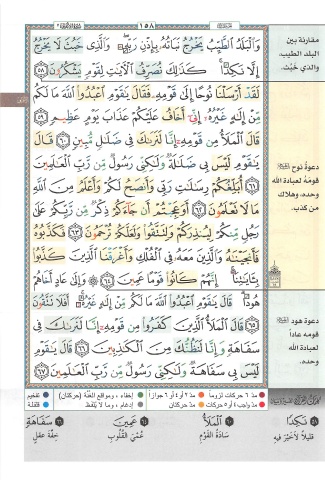 ١٥٨
وَالْبَلَدُ الطَّيِّبُ يَخْرُجُ نَبَاتُهُ بِإِذْنِ رَبِّهِ وَالَّذِي خَبُثَ لَا يَخْرُجُ
إِلَّا نَكِدًا كَذَلِكَ نُصَرِّفُ الْآيَاتِ لِقَوْمٍ يَشْكُرُونَ ٥٨
لَقَدْ أَرْسَلْنَا نُوحًا إِلَى قَوْمِهِ فَقَالَ يَقَوْمِ اعْبُدُوا اللَّهَ مَا لَكُمْ
مِنْ إِلَهٍ غَيْرُهُ إِنِّي أَخَافُ عَلَيْكُمْ عَذَابَ يَوْمٍ عَظِيمٍ ٥٩
قَالَ الْمَلَأُ مِنْ قَوْمِهِ إِنَّا لَنَرَىكَ فِي ضَلَلٍ مُبِينٍ ٦٠ قَالَ
يَقَوْمِ لَيْسَ بِي ضَلَلَةٌ وَلَكِنِّي رَسُولٌ مِنْ رَبِّ الْعَلَمِينَ
٦١ أُبَلِّغُكُمْ رِسَلَتِ رَبِّي وَأَنْصَحُ لَكُمْ وَأَعْلَمُ مِنَ اللَّهِ
مَا لَا تَعْلَمُونَ ٦٢ أَوَعَجِبْتُمْ أَنْ جَاءَكُمْ ذِكْرٌ مِنْ رَبِّكُمْ عَلَى
رَجُلٍ مِنْكُمْ لِيُنْذِرَكُمْ وَلِتَتَّقُوا وَلَعَلَّكُمْ تُرْحَمُونَ ٦٣ فَكَذَّبُوهُ
فَأَنْجَيْنَهُ وَالَّذِينَ مَعَهُ فِي الْفُلْكِ وَأَغْرَقْنَا الَّذِينَ كَذَّبُوا
بِـَٔايَتِنَا إِنَّهُمْ كَانُوا قَوْمًا عَمِينَ ٦٤ وَإِلَى عَادٍ أَخَاهُمْ
هُودًا قَالَ يَقَوْمِ اعْبُدُوا اللَّهَ مَا لَكُمْ مِنْ إِلَهٍ غَيْرُهُ أَفَلَا تَتَّقُونَ
٦٥ قَالَ الْمَلَأُ الَّذِينَ كَفَرُوا مِنْ قَوْمِهِ إِنَّا لَنَرَىكَ فِي
سَفَاهَةٍ وَإِنَّا لَنَظُنُّكَ مِنَ الْكَذِبِينَ ٦٦ قَالَ يَقَوْمِ
لَيْسَ بِي سَفَاهَةٌ وَلَكِنِّي رَسُولٌ مِنْ رَبِّ الْعَلَمِينَ ٦٧
مقارنة بين
البلد الطيب،
والذي خَبُث.
دعوةُ نوح
قومَهُ لعبادة الله
وحده، وهلاك
من كذب.
دعوة هود
قومه عاداً
لعبادة الله
وحده.
مد ٦ حركات لزوماً
مد ٢ أو ٤ أو ٦ جوازاً
إخفاء، ومواقع الغُنَّة (حركتان)
تفخيم
مد واجب ٤ أو ٥ حركات
مد حركتان
إدغام، وما لا يُلفَظ
قلقلة
٥٨ نَكِدًا
قليلًا لا خَيْرَ فيه
٦٠ الْمَلَأُ
سادةُ القَوْم
٦٤ عَمِينَ
عُمْيَ القُلُوبِ
٦٦ سَفَاهَةٍ
خِفَّةِ عقلٍ